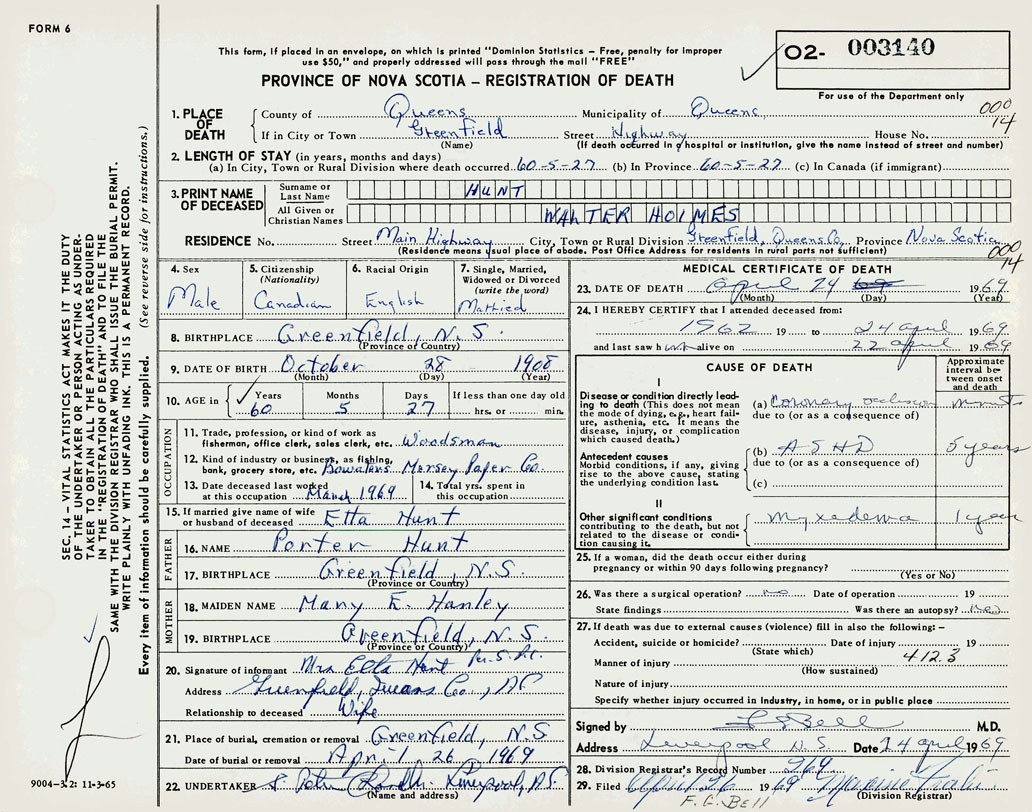 FORM 6
This form, if placed in an envelope, on which is printed "Dominion Statistics – Free, penalty for improper
use $50," and properly addressed will pass through the mail "FREE"
PROVINCE OF NOVA SCOTIA – REGISTRATION OF DEATH
O2- 003140
For use of the Department only
000
14
1. PLACE OF DEATH
County of Queens Municipality of Queens
If in City or Town Greenfield Street Highway House No.
(Name) (If death occurred in a hospital or institution, give the name instead of street and number)
2. LENGTH OF STAY (in years, months and days)
(a) In City, Town or Rural Division where death occurred 60-5-27 (b) In Province 60-5-27 (c) In Canada (if immigrant)
3. PRINT NAME OF DECEASED
Surname or Last Name HUNT
All Given or Christian Names WALTER HOLMES
RESIDENCE No. Street Main Highway City, Town or Rural Division Greenfield, Queens Co. Province Nova Scotia
(Residence means usual place of abode. Post Office Address for residents in rural parts not sufficient)
000
14
4. Sex
Male
5. Citizenship
(Nationality)
Canadian
6. Racial Origin
English
7. Single, Married,
Widowed or Divorced
(write the word)
Married
8. BIRTHPLACE Greenfield, N.S.
(Province or Country)
9. DATE OF BIRTH October 28 1908
(Month) (Day) (Year)
10. AGE in
Years Months Days If less than one day old
60 5 27 hrs. or min.
OCCUPATION
11. Trade, profession, or kind of work as
fisherman, office clerk, sales clerk, etc. Woodsman
12. Kind of industry or business, as fishing,
bank, grocery store, etc. Bowaters Mersey Paper Co.
13. Date deceased last worked
at this occupation March 1969
14. Total yrs. spent in
this occupation
15. If married give name of wife
or husband of deceased Etta Hunt
FATHER
16. NAME Porter Hunt
17. BIRTHPLACE Greenfield, N.S.
(Province or Country)
MOTHER
18. MAIDEN NAME Mary E. Hanley
19. BIRTHPLACE Greenfield, N.S.
(Province or Country)
20. Signature of informant Mrs Etta Hunt
Address Greenfield, Queens Co., N.S.
Relationship to deceased Wife
21. Place of burial, cremation or removal Greenfield, N.S.
Date of burial or removal April 26 1969
22. UNDERTAKER Liverpool, N.S.
(Name and address)
MEDICAL CERTIFICATE OF DEATH
23. DATE OF DEATH April 24 1969
(Month) (Day) (Year)
24. I HEREBY CERTIFY that I attended deceased from:
1962 19 to 24 April 1969
and last saw him alive on 22 April 1969
CAUSE OF DEATH
Approximate
interval be-
tween onset
and death
I
Disease or condition directly lead-
ing to death (This does not
mean the mode of dying, e.g., heart fail-
ure, asthenia, etc. It means the
disease, injury, or complication
which caused death.)
(a) Coronary occlusion minutes
due to (or as a consequence of)
Antecedent causes
Morbid conditions, if any, giving
rise to the above cause, stating
the underlying condition last.
(b) ASHD 5 years
due to (or as a consequence of)
(c)
II
Other significant conditions
contributing to the death, but not
related to the disease or condi-
tion causing it.
Myxedema 1 year
25. If a woman, did the death occur either during
pregnancy or within 90 days following pregnancy?
(Yes or No)
26. Was there a surgical operation? no Date of operation 19
State findings Was there an autopsy?
27. If death was due to external causes (violence) fill in also the following:–
Accident, suicide or homicide? Date of injury 19
(State which)
412.3
Manner of injury
(How sustained)
Nature of injury
Specify whether injury occurred in Industry, in home, or in public place
Signed by F G Bell M.D.
Address Liverpool N.S. Date 24 April 1969
28. Division Registrar's Record Number 269
29. Filed April 26 1969
(Division Registrar)
F. G. BELL
SEC. 14 – VITAL STATISTICS ACT MAKES IT THE DUTY
OF THE UNDERTAKER OR PERSON ACTING AS UNDER-
TAKER TO OBTAIN ALL THE PARTICULARS REQUIRED
IN THE "REGISTRATION OF DEATH" AND TO FILE THE
SAME WITH THE DIVISION REGISTRAR WHO SHALL ISSUE THE BURIAL PERMIT.
WRITE PLAINLY WITH UNFADING INK. THIS IS A PERMANENT RECORD.
Every item of information should be carefully supplied. (See reverse side for instructions.)
9004–3.2: 11-3-65